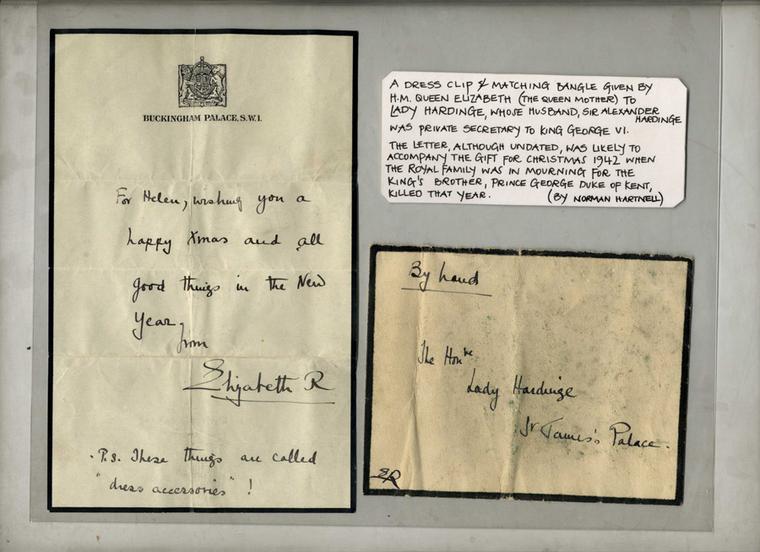 BUCKINGHAM PALACE, S.W.1.
For Helen, wishing you a
happy Xmas and all
good things in the New
Year,
from
Elizabeth R
P.S. These things are called
"dress accessories" !
A DRESS CLIP & MATCHING BANGLE GIVEN BY
H.M. QUEEN ELIZABETH (THE QUEEN MOTHER) TO
LADY HARDINGE, WHOSE HUSBAND, SIR ALEXANDER
HARDINGE
WAS PRIVATE SECRETARY TO KING GEORGE VI.
THE LETTER, ALTHOUGH UNDATED, WAS LIKELY TO
ACCOMPANY THE GIFT FOR CHRISTMAS 1942 WHEN
THE ROYAL FAMILY WAS IN MOURNING FOR THE
KING'S BROTHER, PRINCE GEORGE DUKE OF KENT,
KILLED THAT YEAR. (BY NORMAN HARTNELL)
By hand
The Honble
Lady Hardinge
St James's Palace.
ER